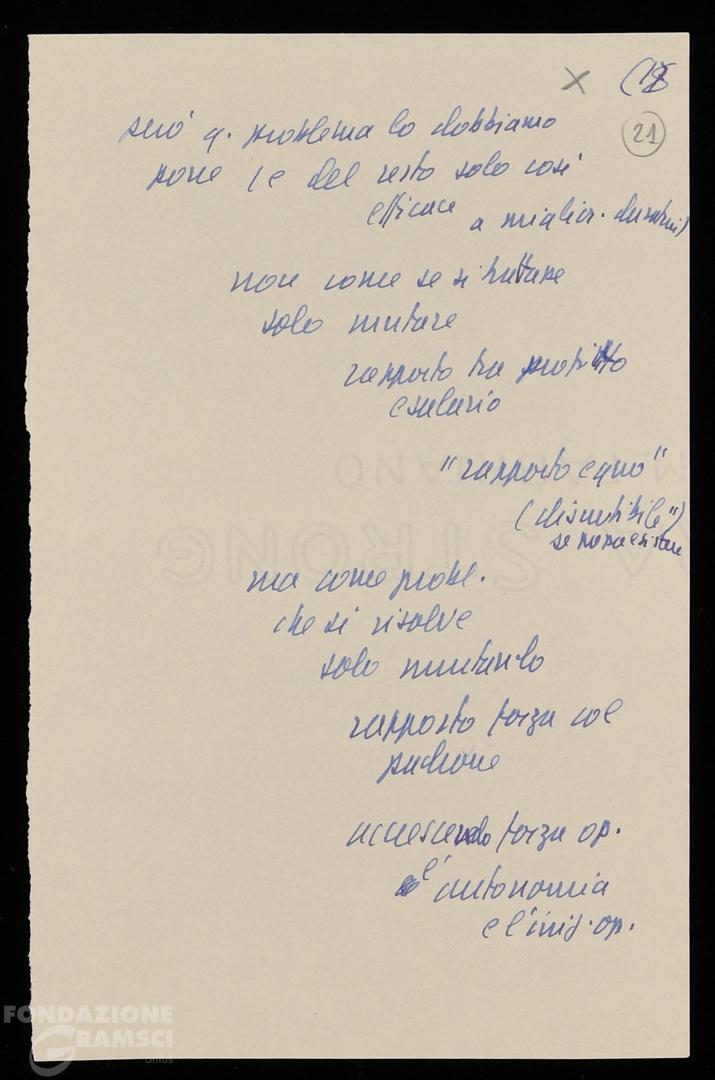 X (18
21
però q. problema lo dobbiamo
porre (e del resto solo così
efficace a miglior.
non come se si trattasse
solo mutare
rapporto tra profitto
e salario
"rapporto equo"
(discutibile")
se possa esistere
ma come probl.
che si risolve
solo mutando
rapporto forza col
padrone
accrescendo forza op.
l'autonomia
e l'inig. op.
FONDAZIONE
GRAMSCI
onlus